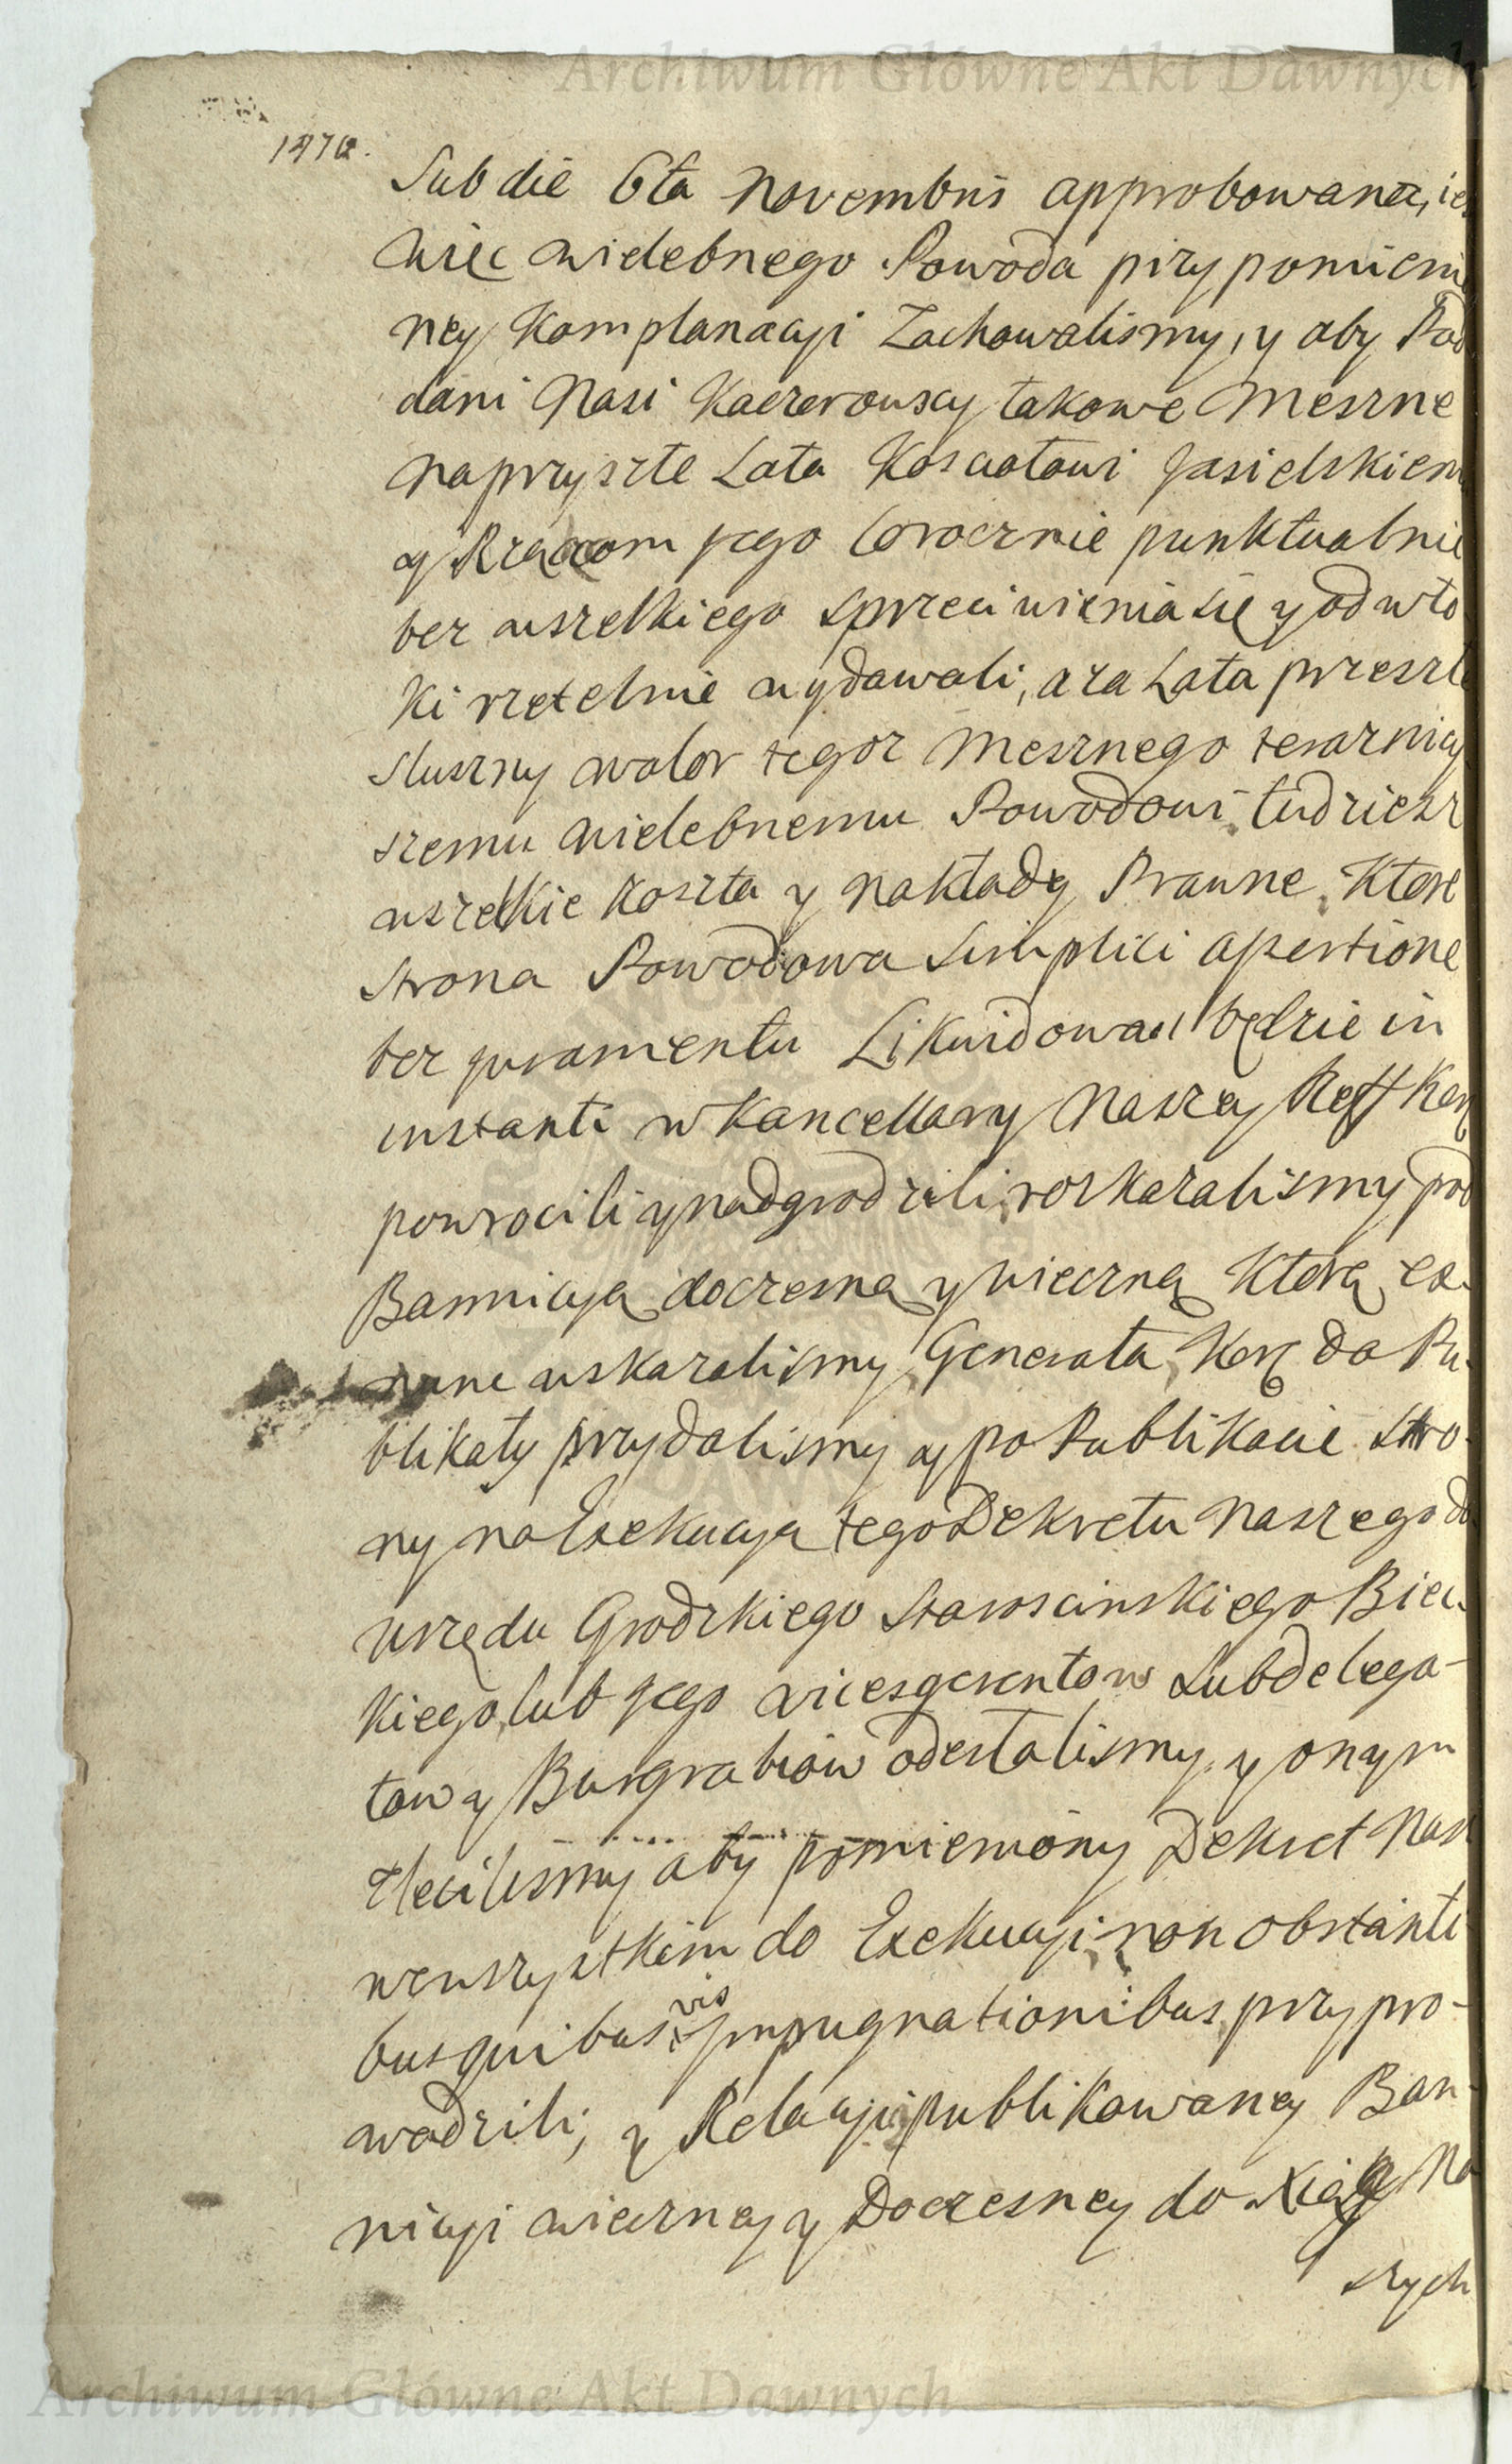 Archiwum Główne Akt Dawnych
Sub die 6ta Novembris approbowana, ies
więc wielebnego Powoda przy pomienio
ney Komplanacyi Zachowalismy, y aby Pod
dani Nasi Kaczorowscy takowe Meszne
na przyszte Lata Kosciołowi Jasielskiem
y Rządcom Jego Corocznie punktualnie
bez wszelkiego sprzeciwienia się y odwło
ki rzetelnie wydawali, a za Lata przeszłe
słuszny walor tegoz Mesznego terazniey
szemu wielebnemu Powodowi, tudziesz
wszelkie koszta y nakłady Prawne, Ktore
strona Powodowa Simplici assertione
bez juramentu Likwidowac będzie in
instanti w Kancellary Naszey Reff Kor
powrocili y nadgrodzili, roskazalismy pod
Bannicyą doczesną y wieczną, Ktorą ex
nunc wskazalismy, Generała, Kor. do Pu-
blikaty przydalismy y po Publikacie stro-
ny na Exekucyą tego Dekretu Naszego do
urzędu Grodzkiego Staroscinskiego Biec-
kiego, lub Jego vicesgerentow Subdelega-
tow y Burgrabiow odesłalismy, y onym
zlecilismy aby pomieniony Dekret Nasz
we wszystkim do Exekucyi, non obstanti
bus quibus vis impugnationibus, przypro-
wadzili, y Relacyi publikowaney Ban-
nicyi wieczney y Doczesney do Xiąg Na
szych
Archiwum Główne Akt Dawnych